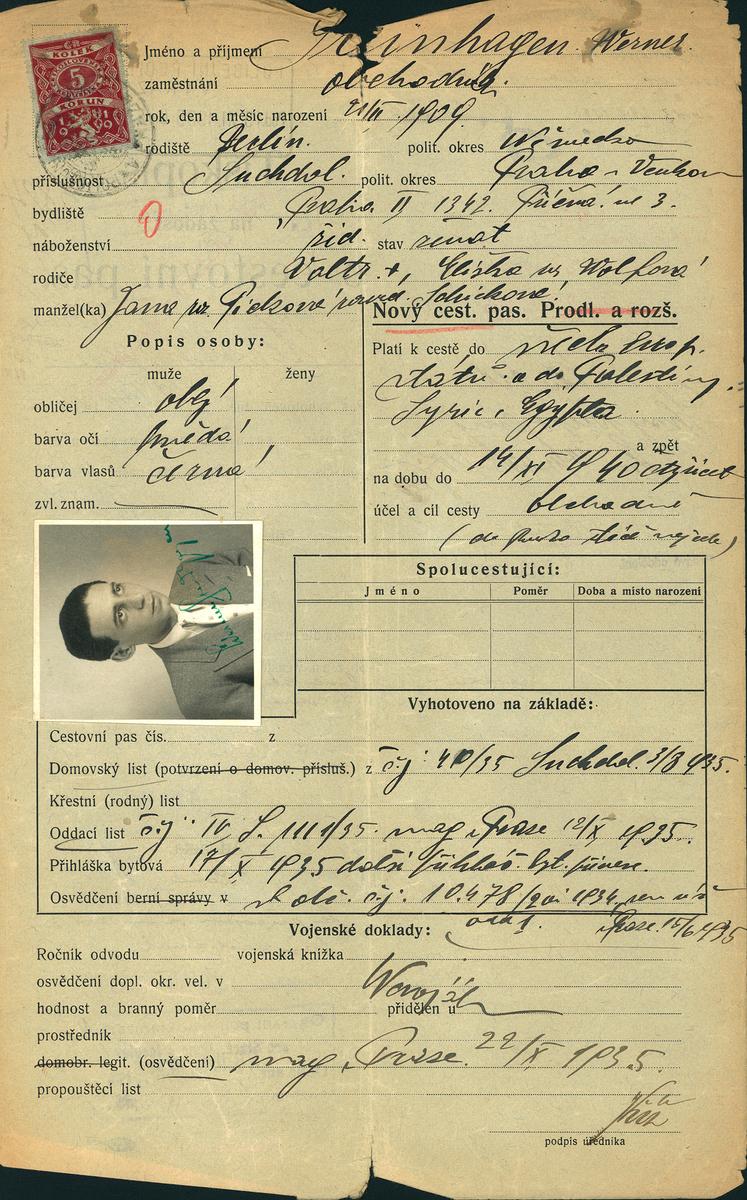 KOLEK
5
KORUN
1919
Jméno a příjmení Grünhagen Werner
zaměstnání obchodník
rok, den a měsíc narození 21/II 1909
rodiště Berlín. polit. okres Německo
příslušnost Suchdol. polit. okres Praha - Venkov
bydliště Praha II 1342. Příčná ul 3.
náboženství žid. stav ženat
rodiče Valtr +, Eliška roz. Wolfová
manžel(ka) Jana roz. Picková rozvd. Schicková
Nový cest. pas. Prodl. a rozš.
Popis osoby:
muže ženy
obličej obly
barva očí hnědá
barva vlasů černá
zvl. znam.
Platí k cestě do všech Evrop.
států a do Palestiny,
Syrie, Egypta
a zpět
na dobu do 14/XI 1940
účel a cíl cesty obchodně
Spolucestující:
Jméno Poměr Doba a místo narození
Vyhotoveno na základě:
Cestovní pas čís. z
Domovský list (potvrzení o domov. přísluš.) z čj: 410/35 Suchdol 3/8 1935.
Křestní (rodný) list
Oddací list čj: IV S. 1111/35. mag. Praze 12/X 1935.
Přihláška bytová 17/X 1935
Osvědčení berní správy v čj. 10.478
Praze 15/6 1935
Vojenské doklady:
Ročník odvodu vojenská knížka
osvědčení dopl. okr. vel. v
hodnost a branný poměr přidělen u
Nevoják
prostředník
domobr. legit. (osvědčení) mag. Praze. 22/X 1935.
propouštěcí list
podpis úředníka